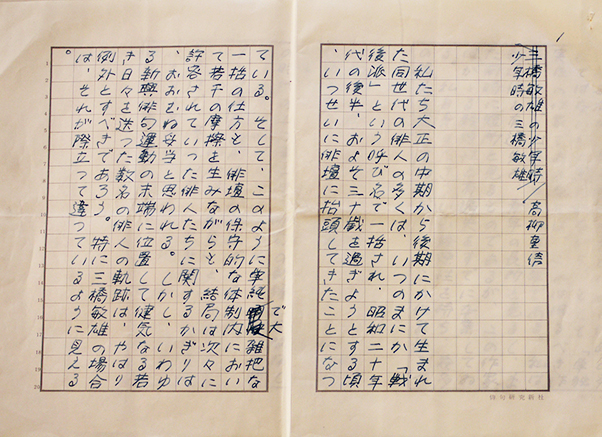 1
三橋敏雄の少年時 高柳重信
少年時の三橋敏雄
私たち大正の中期から後期にかけて生まれ
た同世代の俳人の多くは、いつのまにか「戦
後派」という呼び名で一括され、昭和二十年
代の後半、およそ三十歳を過ぎようとする頃
、いっせいに俳壇に抬頭してきたことになっ
ている。そして、このように単純で大雑把な
一括の仕方も、俳壇の保守的な体制内におい
て若干の摩擦を生みながらも、結局は次々に
許容されていった俳人たちに関するかぎりは
、おおむね妥当と思われる。しかし、いわゆ
る新興俳句運動の末端に位置して健気な若
き日々を送った数名の俳人の軌跡は、やはり
例外とすべきであろう。特に三橋敏雄の場合
は、それが際立って違っているように見える
。
俳句研究新社